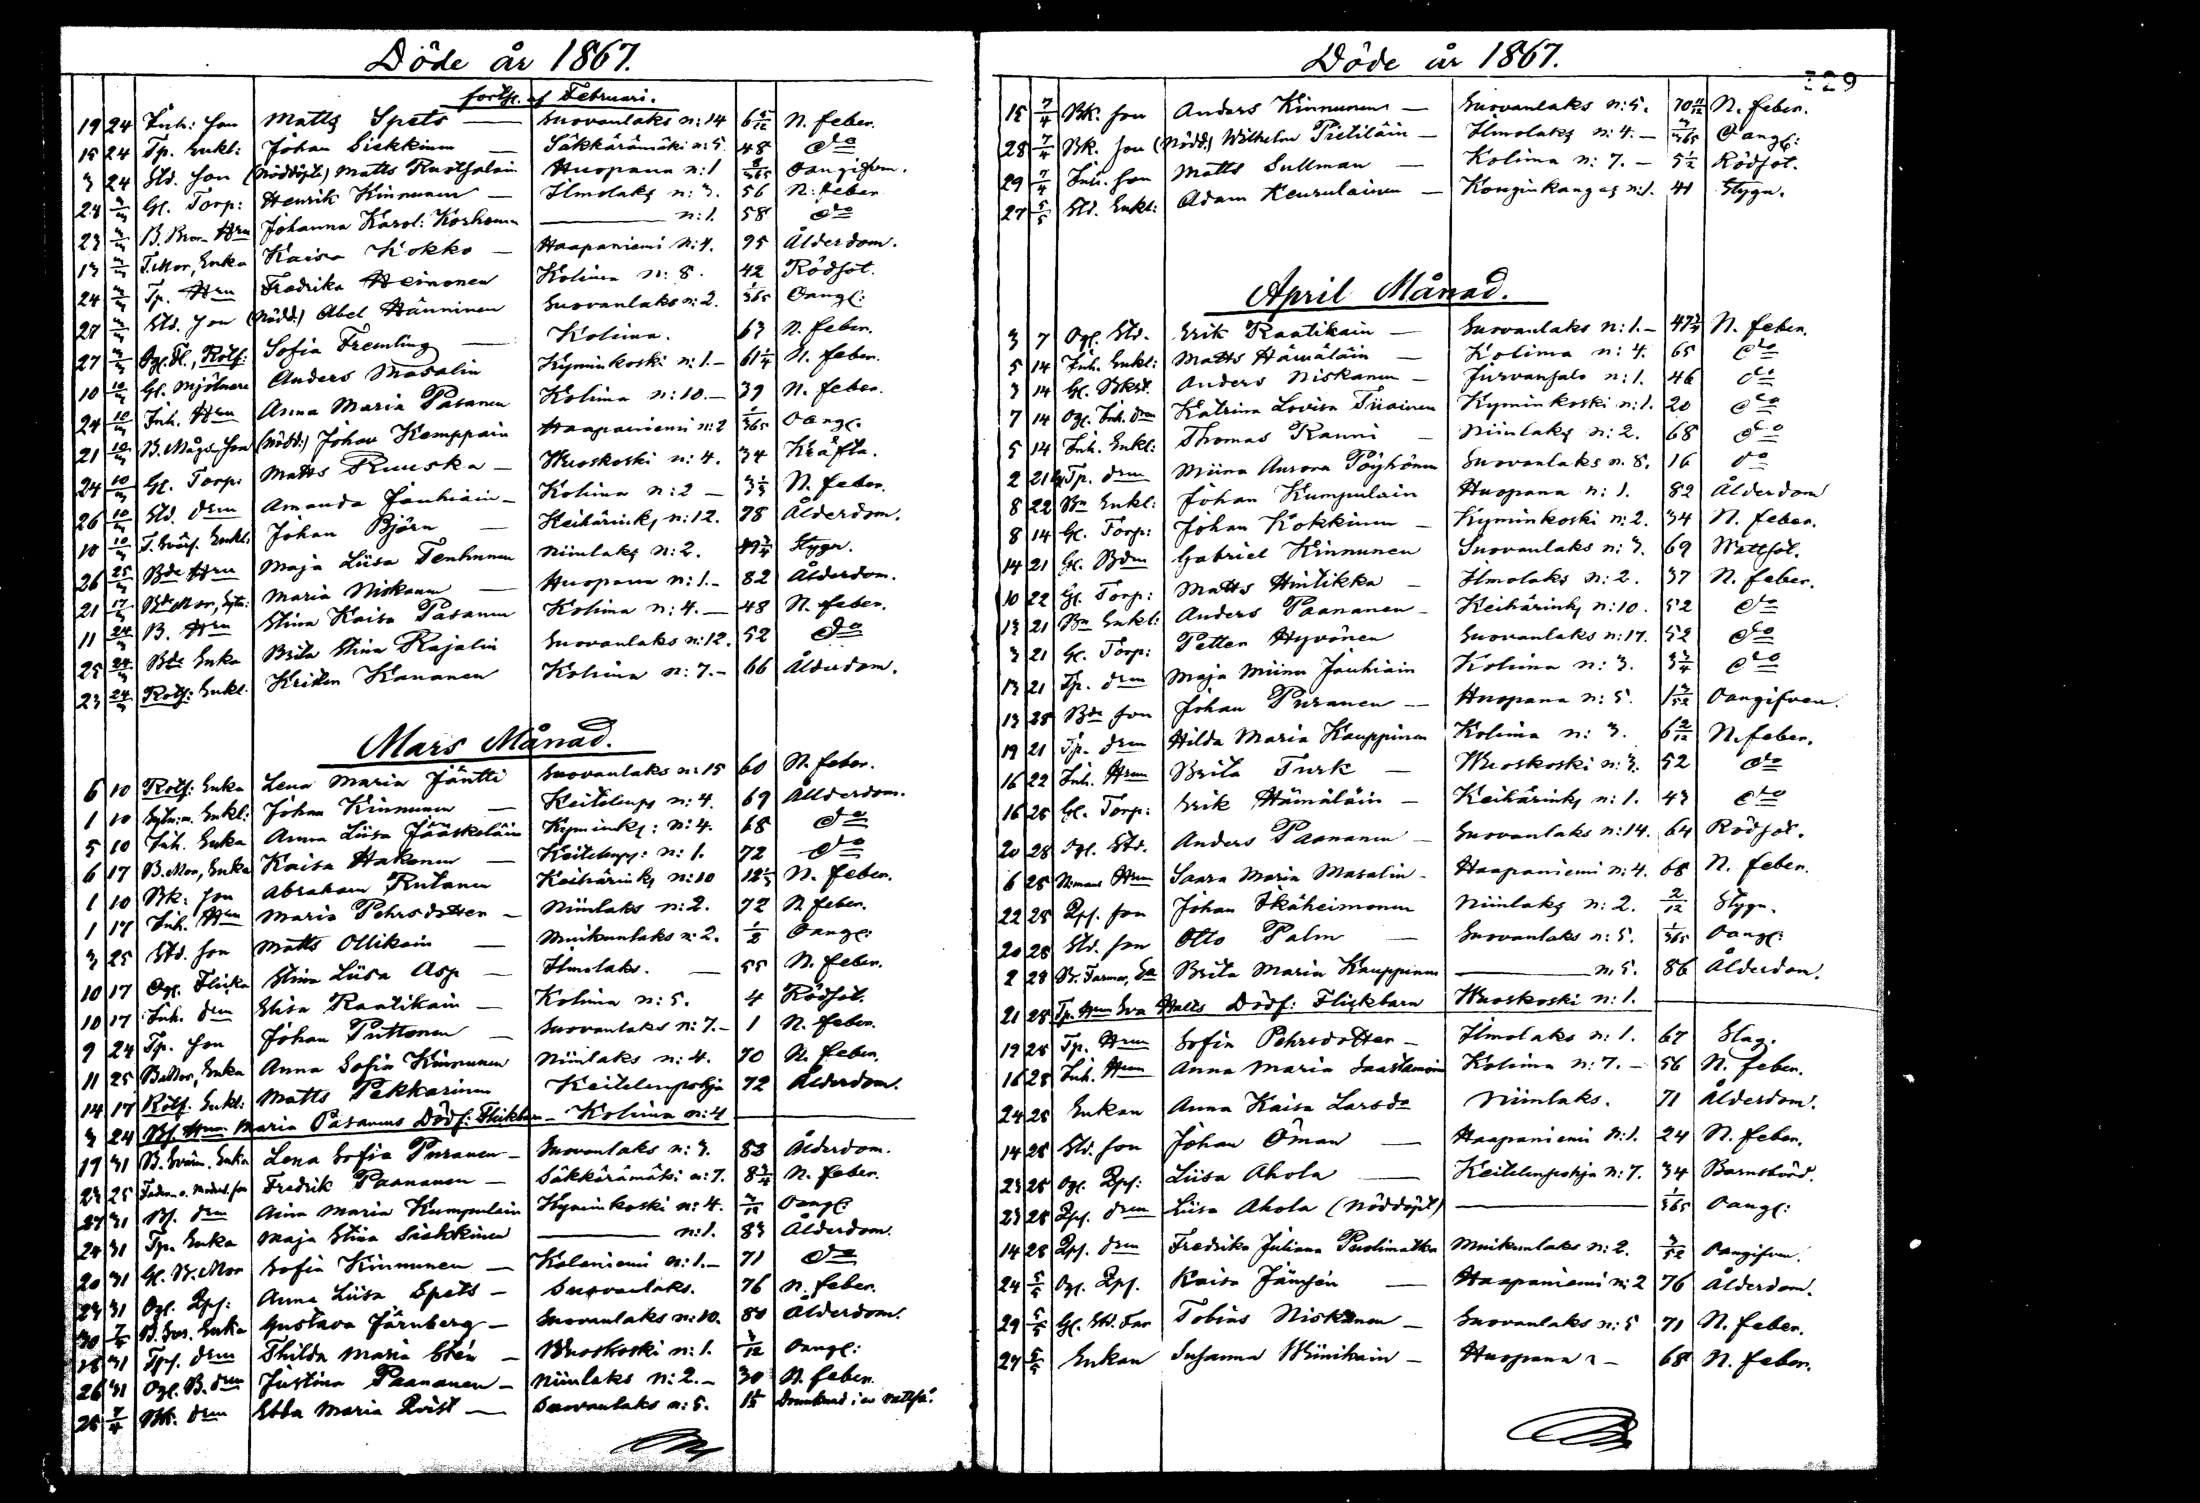 Döde år 1867.
forts. af Februari.
19 24 Inh: son Matts Spets — Suovanlaks n: 14 6 5/12 N. feber.
15 24 Tp. Enkl: Johan Sickkinen — Säkkärämäki n: 5. 48 do
3 24 Std. son (Nöddöpte) Matts Ruotsalain Huopana n: 1 8/365 Oangifven.
24 3/3 Gl. Torp: Henrik Kinnunen — Ilmolaks n: 3. 56 N. feber
23 3/3 B. Bror Hru Johanna Karol: Korhonen — n: 1. 58 do
13 3/3 T. Mor, Enka Kaisa Kokko — Haapaniemi n: 4. 95 Ålderdom.
24 3/3 Tp. Hru Fredrika Heinonen Kolima n: 8. 42 Rödsot.
27 3/3 Std. son (Nödd:) Abel Hänninen Suovanlaks n: 2. 1/365 Oangf:
27 3/3 Ogf. Fl., Rotf: Sofia Fremling — Kolima. 63 N. feber.
10 10/3 Gl. Mjölnare Anders Masalin Kyminkoski n: 1. — 61 1/4 N. feber.
24 10/3 Inh. Hru Anna Maria Pasanen Kolima n: 10. — 39 N. feber.
21 10/3 B. Mågs son (Nödd:) Johan Kemppain Haapaniemi n: 2 1/365 Oangf.
24 10/3 Gl. Torp: Matts Ruuska — Wuoskoski n: 4. 34 Kräfta.
26 10/3 Std. dren Amanda Jauhiain — Kolima n: 2 — 3 1/3 N. feber.
10 10/3 T. Svärf. Enkl: Johan Björn — Keihärinks n: 12. 78 Ålderdom.
26 25/3 Bde Hru Maja Liisa Tenhunen Niinlaks n: 2. 49 3/4 Stygn.
21 17/3 Bde Mor, Sytn: Maria Niskanen — Huopana n: 1. — 82 Ålderdom.
11 24/3 B. Hru Stina Kaisa Pasanen Kolima n: 4. — 48 N. feber.
25 24/3 Bde Enka Brita Stina Rajalin Suovanlaks n: 12. 52 do
23 24/3 Rotf: Enkl. Kristen Kananen Kolima n: 7. — 66 Ålderdom.
Mars Månad.
6 10 Rotf: Enka Lena Maria Jäntti Suovanlaks n: 15 60 N. feber.
1 10 Sytn: m. Enkl: Johan Kinnunen — Keitelenps n: 4. 69 Ålderdom.
5 10 Inh. Enka Anna Liisa Jääskeläin Kyminks: n: 4. 68 do
6 17 B. Mor, Enka Kaisa Hakonen — Keitelenps: n: 1. 72 do
1 10 Bk: son Abraham Rutanen Keihärinks n: 10 12 1/3 N. feber.
1 17 Inh. Hru Maria Pehrsdotter — Niinlaks n: 2. 72 N. feber.
3 25 Std. son Matts Ollikain — Muikunlaks n: 2. 1/2 Oangf:
10 17 Ogf. Flicka Stina Liisa Asp — Ilmolaks. — 55 N. feber.
10 17 Inh. dren Elisa Raatikain — Kolima n: 5. 4 Rödsot.
9 24 Tp. son Johan Puttonen — Suovanlaks n: 7. — 1 N. feber.
11 25 B. Mor, Enka Anna Sofia Kinnunen Niinlaks n: 4. 70 N. feber.
14 17 Rotf. Enkl: Matts Pekkarinen Keitelenpohja 72 Ålderdom.
3 24 Bf. Hrus Maria Påsanens Dödf: Flickbarn — Kolima n: 4
19 31 B. Svärm. Enka Lena Sofia Puranen — Suovanlaks n: 3. 83 Ålderdom.
23 25 Fader o. Moderl. son Fredrik Paananen — Säkkärämäki n: 7. 8 3/4 N. feber.
27 31 Bf. dren Aina Maria Kumpulain Kyminkoski n: 4. 3/12 Oangf:
24 31 Tp. Enka Maja Stina Säckkinen — n: 1. 83 Ålderdom.
20 31 Gl. B. Mor Sofia Kinnunen — Koleniemi n: 1. — 71 do
23 31 Ogf. Qpf: Anna Liisa Spets — Suovanlaks. 76 N. feber.
30 7/4 Enka Gustava Järnberg — Suovanlaks n: 10. 80 Ålderdom.
18 31 Tpf. dren Thilda Maria Stén — Wuoskoski n: 1. 3/12 Oangf:
26 31 Ogf. B. dren Justina Paananen — Niinlaks n: 2. — 30 N. feber.
26 7/4 Bk. dren Ebba Maria Qvist — Suovanlaks n: 5. 1 5/12 Drunknad i en
Döde år 1867.
329
15 7/4 Bk. son Anders Kinnunen — Suovanlaks n: 5. 10 11/12 N. feber.
28 7/4 Bk. son (Nödd:) Wilhelm Pietiläin — Ilmolaks n: 4. — 3/365 Oangf:
29 7/4 Inh. son Matts Sullman — Kolima n: 7. — 5 1/2 Rödsot.
27 5/5 Std. Enkl: Adam Keurulainen — Konginkangas n: 1. 41 Stygn.
April Månad.
3 7 Ogf. Std. Erik Raatikain — Suovanlaks n: 1. — 47 3/4 N. feber.
5 14 Inh. Enkl: Matts Hämäläin — Kolima n: 4. 65 do
3 14 Gl. Bkst. Anders Niskanen — Jurvansalo n: 1. 46 do
7 14 Ogf. Inh. dren Katrina Lovisa Tiiainen Kyminkoski n: 1. 20 do
5 14 Inh. Enkl: Thomas Kanni — Niinlaks n: 2. 68 do
2 21 Tp. dren Miina Aurora Pöyhönen Suovanlaks n. 8. 16 do
8 22 Bn Enkl: Johan Kumpulain Huopana n: 1. 82 Ålderdom
8 14 Gl. Torp: Johan Kokkinen — Kyminkoski n: 2. 34 N. feber.
14 21 Gl. Bdm Gabriel Kinnunen Suovanlaks n: 3. 69 Wattsot.
10 22 Gl. Torp: Matts Hintikka — Ilmolaks n: 2. 37 N. feber.
13 21 Bn Enkl: Anders Paananen — Keihärinks n: 10. 52 do
3 21 Gl. Torp: Petter Hyvönen Suovanlaks n: 17. 52 do
13 21 Tp. dren Maja Miina Jauhiain Kolima n: 3. 3 3/4 do
13 25 Bde son Johan Puranen — Huopana n: 5. 1 3/52 Oangifven.
19 21 Tp. dren Hilda Maria Kauppinen Kolima n: 3. 6 2/12 N. feber.
16 22 Inh. Hrun Brita Turk — Wuoskoski n: 3. 52 do
16 28 Gl. Torp: Erik Hämäläin — Keihärinks n: 1. 43 do
20 28 Ogf. Std. Anders Paananen — Suovanlaks n: 14. 64 Rödsot.
6 25 Hrun Saara Maria Masalin — Haapaniemi n: 4. 68 N. feber.
22 28 Qpf. son Johan Ikäheimonen Niinlaks n: 2. 2/12 Stygn.
20 28 Std. son Otto Palm — Suovanlaks n: 5. 1/365 Oangf:
2 28 B. Farmor, Ea Brita Maria Kauppinen — n: 5. 86 Ålderdom.
21 28 Tp. Hrun Eva Halls Dödf: Flickbarn Wuoskoski n: 1.
19 28 Tp. Hrun Sofia Pehrsdotter — Ilmolaks n: 1. 67 Slag.
16 28 Inh. Hrun Anna Maria Saastamoin Kolima n: 7. — 56 N. feber.
24 28 Enkan Anna Kaisa Larsdr Niinlaks. 71 Ålderdom.
14 28 Std. son Johan Öman — Haapaniemi n: 1. 24 N. feber.
23 28 Ogf. Qpf: Liisa Ahola — Keitelenpohja n: 7. 34 Barnsbörd.
23 28 Qpf. dren Liisa Ahola (Nöddöpt) — 1/365 Oangf:
14 28 Qpf. dren Fredrika Juliana Puolimatka Muikunlaks n: 2. 3/52 Oangifven.
24 5/5 Ogf. Qpf. Kaisa Jämsén — Haapaniemi n: 2 76 Ålderdom.
29 5/5 Gl. Std. Far Tobias Niskanen — Suovanlaks n: 5 71 N. feber.
27 5/5 Enkan Susanna Wiinikain — Huopana 68 N. feber.